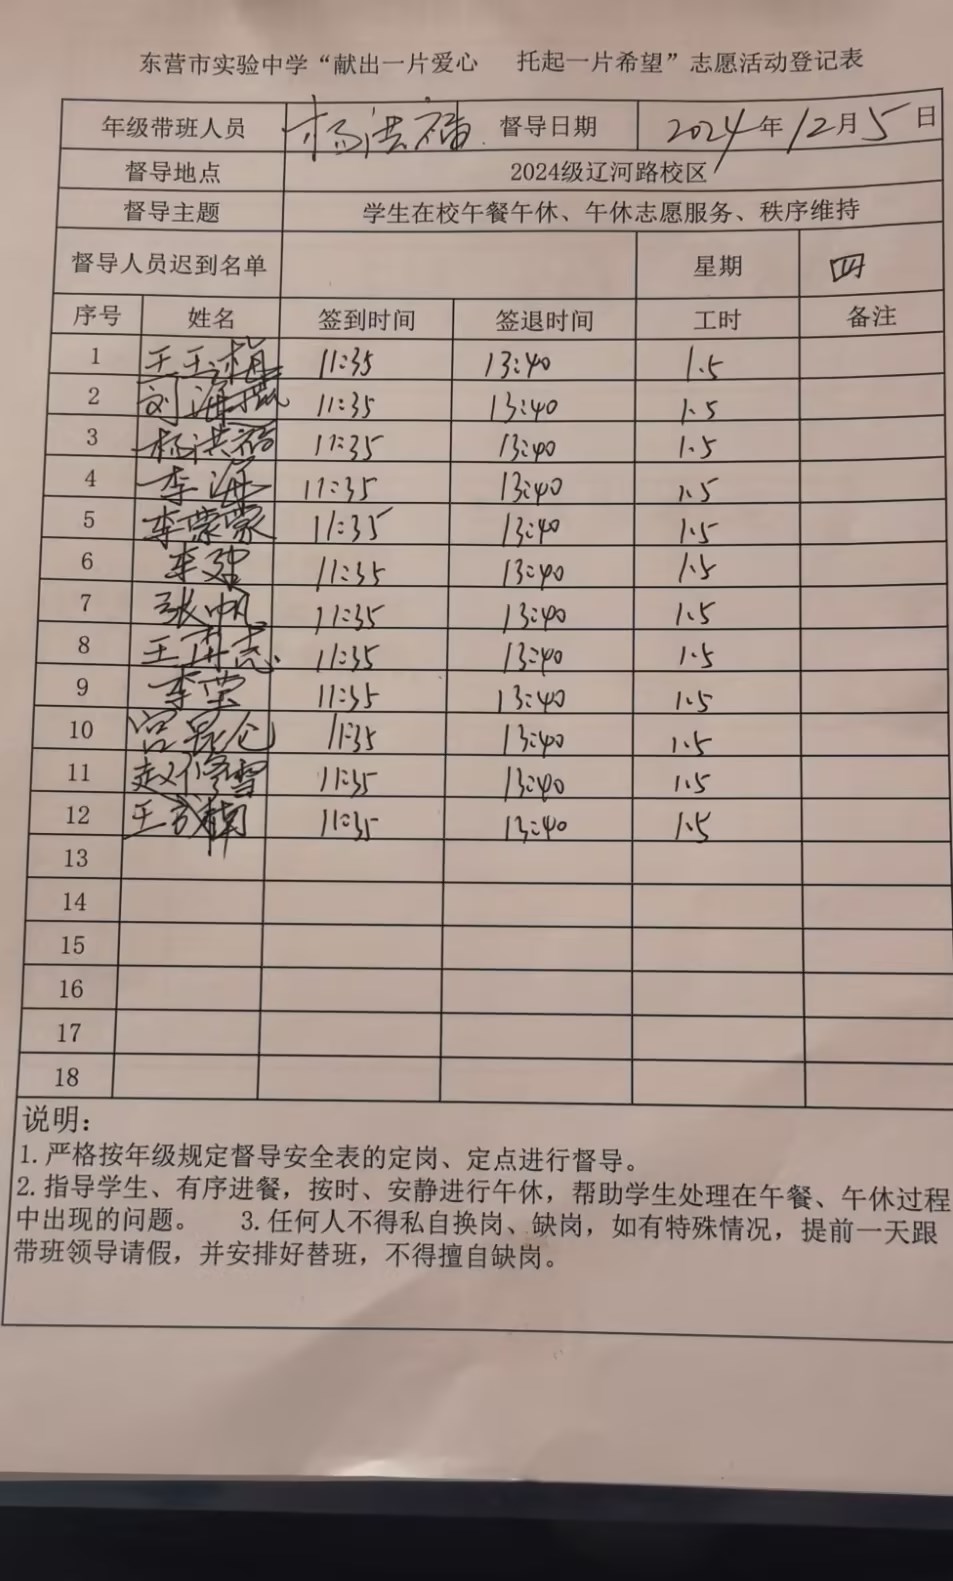 东营市实验中学“献出一片爱心 托起一片希望”志愿活动登记表
年级带班人员 杨洪福 督导日期 2024年12月5日
督导地点 2024级辽河路校区
督导主题 学生在校午餐午休、午休志愿服务、秩序维持
督导人员迟到名单 星期 四
序号 姓名 签到时间 签退时间 工时 备注
1 11:35 13:40 1.5
2 刘海 11:35 13:40 1.5
3 杨洪福 11:35 13:40 1.5
4 李海 11:35 13:40 1.5
5 李荣荣 11:35 13:40 1.5
6 李 11:35 13:40 1.5
7 张帆 11:35 13:40 1.5
8 王 志 11:35 13:40 1.5
9 李莹 11:35 13:40 1.5
10 宫昆仑 11:35 13:40 1.5
11 赵修雪 11:35 13:40 1.5
12 王 楠 11:35 13:40 1.5
13
14
15
16
17
18
说明:
1.严格按年级规定督导安全表的定岗、定点进行督导。
2.指导学生、有序进餐，按时、安静进行午休，帮助学生处理在午餐、午休过程
中出现的问题。 3.任何人不得私自换岗、缺岗，如有特殊情况，提前一天跟
带班领导请假，并安排好替班，不得擅自缺岗。